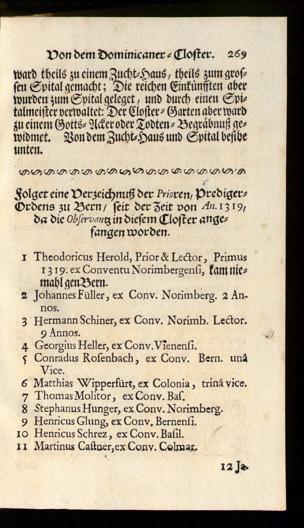 Von dem Dominicaner-Closter. 269
ward theils zu einem Zucht-Haus, theils zum gros-
sen Spital gemacht; Die reichen Einkünfften aber
wurden zum Spital geleget, und durch einen Spi-
talmeister verwaltet: Der Closter-Garten aber ward
zu einem Gotts-Acker oder Todten-Begräbnuß ge-
widmet. Von dem Zucht-Haus und Spital besihe
unten.
Folger eine Verzeichnuß der Prioren, Prediger-
Ordens zu Bern, seit der Zeit von An. 1319,
da die Observantz in diesem Closter ange-
fangen worden.
1 Theodoricus Herold, Prior & Lector, Primus
1319. ex Conventu Norimbergensi, kam nie-
mahl gen Bern.
2 Johannes Füller, ex Conv. Norimberg. 2 An-
nos.
3 Hermann Schiner, ex Conv. Norimb. Lector.
9 Annos.
4 Georgius Heller, ex Conv. Vienensi.
5 Conradus Rosenbach, ex Conv. Bern. unâ
Vice.
6 Matthias Wippersürt, ex Colonia, trinâ vice.
7 Thomas Molitor, ex Conv. Bas.
8 Stephanus Hunger, ex Conv. Norimberg.
9 Henricus Glung, ex Conv. Bernensi.
10 Henricus Schrez, ex Conv. Basil.
11 Martinus Castner, ex Conv. Colmar.
12 Ja.